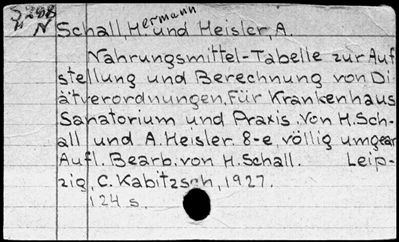 S298
N
Schall, Hermann und Heisler, A.
Nahrungsmittel-Tabelle zur Auf
stellung und Berechnung von Di
ätverordnungen. Für Krankenhaus
Sanatorium und Praxis. Von H. Sch-
all und A. Heisler. 8-e, völlig umgear
Aufl. Bearb. von H. Schall. Leip-
zig, C. Kabitzsch, 1927.
124 s.